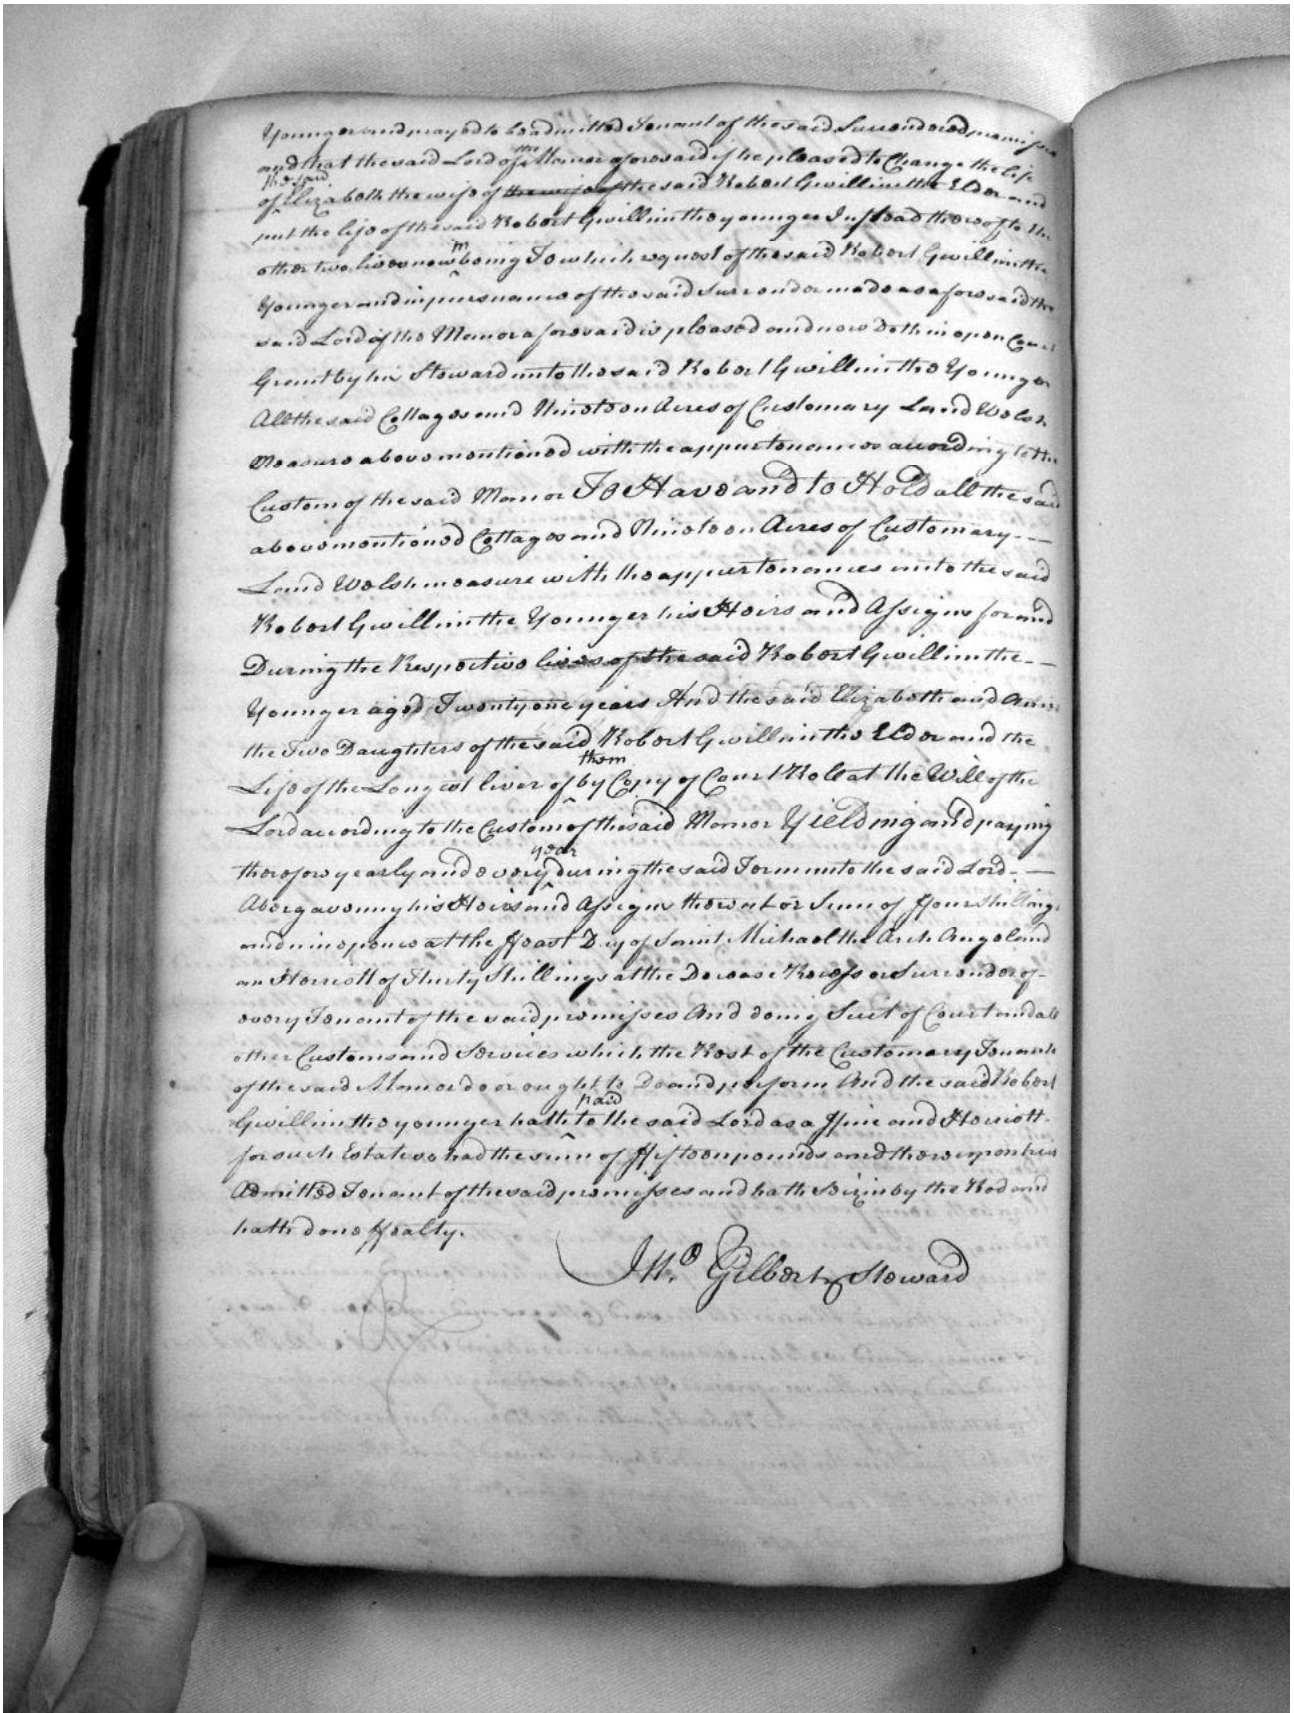 Younger and prayed to be admitted Tenant of the said Surrendered premisses
and that the said Lord of the Manor aforesaid if he pleased to Change the life
of the said Elizabeth the wife of the wife of the said Robert Gwillim the Elder and
put the life of the said Robert Gwillim the younger Instead thereof to the
other two lives now in being To which request of the said Robert Gwillim the
Younger and in pursuance of the said Surrender made as aforesaid the
said Lord of the Manor aforesaid is pleased and now doth in open Court
Grant by his Steward unto the said Robert Gwillim the Younger
All the said Cottages and Nineteen Acres of Customary Land Welsh
Measure above mentioned with the appurtenances according to the
Custom of the said Manor To Have and to Hold all the said
above mentioned Cottages and Nineteen Acres of Customary - -
Land Welsh measure with the appurtenances unto the said
Robert Gwillim the Younger his Heirs and Assigns for and
During the Respective lives of the said Robert Gwillim the - -
Younger aged Twenty one years And the said Elizabeth and Anne
the Two Daughters of the said Robert Gwillim the Elder and the
Life of the Longest liver of them by Copy of Court Roll at the Will of the
Lord according to the Custom of the said Manor Yielding and paying
therefore yearly and every year during the said Term unto the said Lord - -
Abergavenny his Heirs and Assigns the rent or Sum of ffour shillings
and nine pence at the ffeast Day of Saint Michael the Arch Angel and
an Herriott of Thirty Shillings at the Decease Recess or Surrender of -
every Tenant of the said premisses And doing Suit of Court and all
other Customs and Services which the Rest of the Customary Tenants
of the said Manor do or ought to Do and perform And the said Robert
Gwillim the younger hath paid to the said Lord as a ffine and Heriott -
for such Estate so had the sum of ffifteen pounds and thereupon he is
Admitted Tenant of the said premisses and hath Seizin by the Rod and
hath done ffealty.
Gilbert Steward